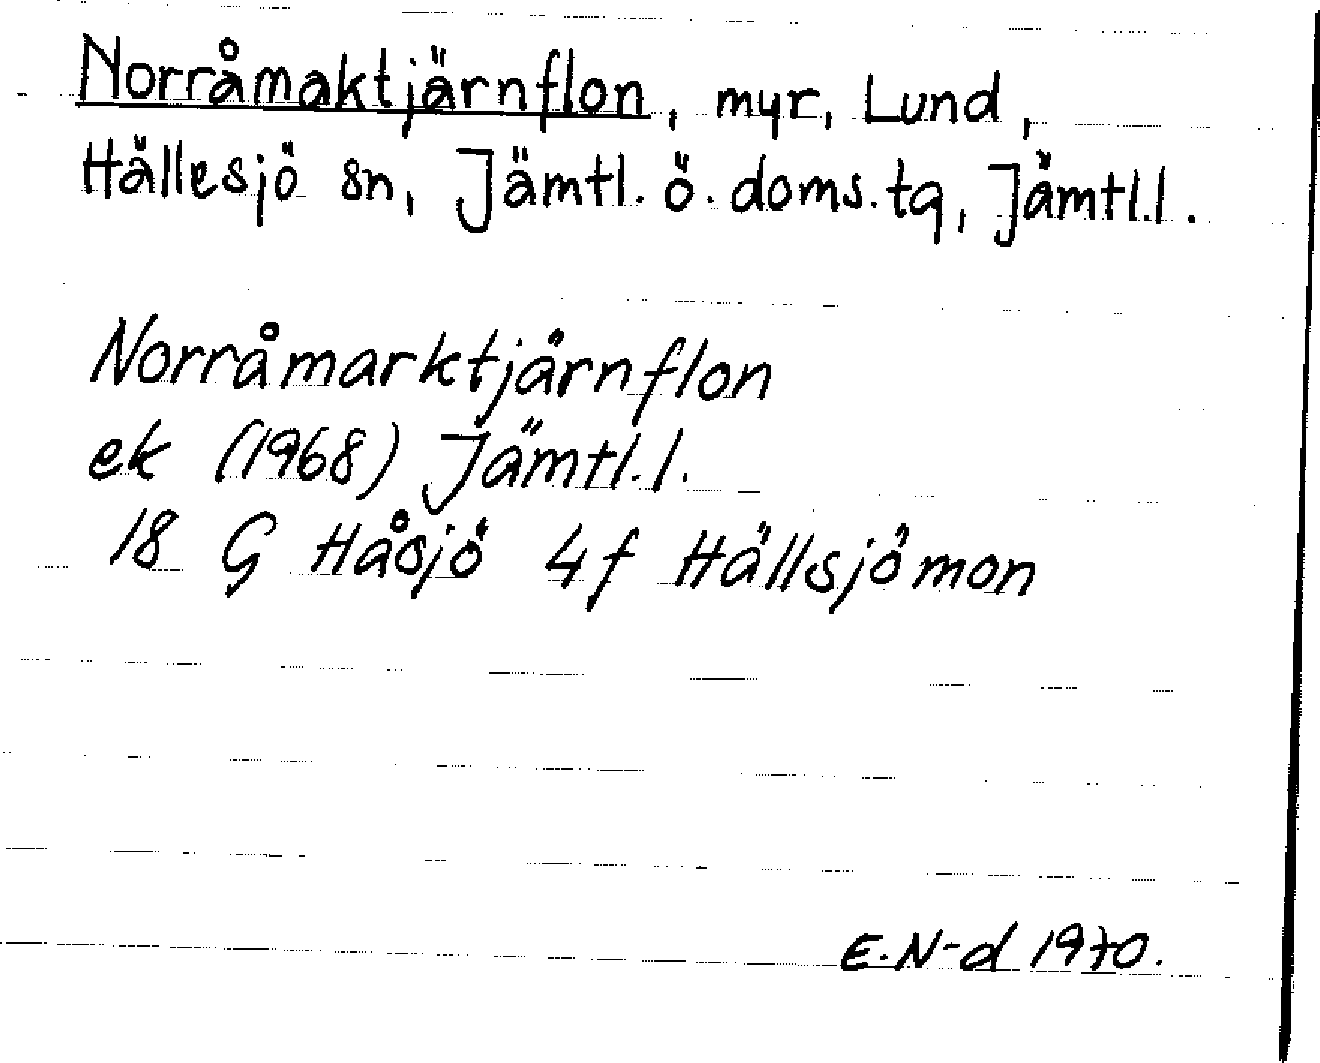 Norråmaktjärnflon, myr, Lund,
Hällesjö sn, Jämtl. ö. doms. tg, Jämtl.l.
Norråmarktjärnflon
ek (1968) Jämtl.l.
18 G Håsjö 4f Hällsjömon
E.N-d 1970.